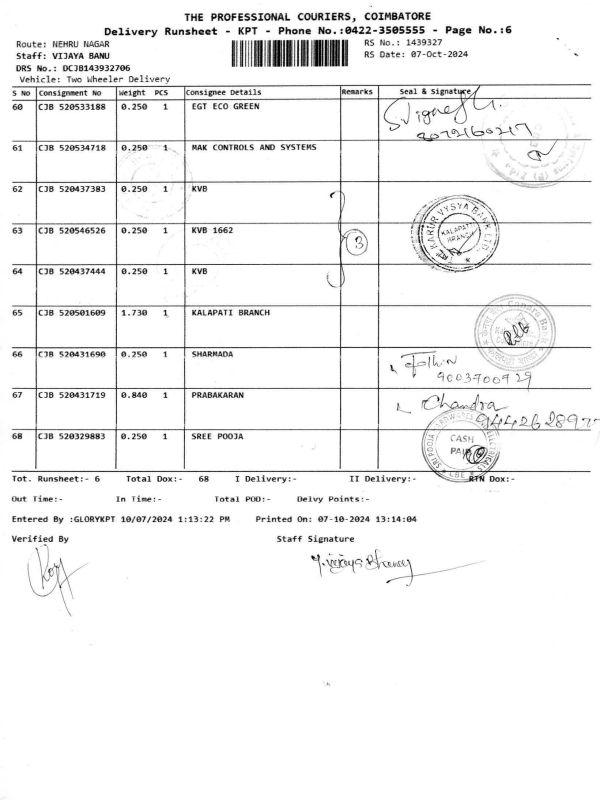 THE PROFESSIONAL COURIERS, COIMBATORE
Delivery Runsheet - KPT - Phone No.:0422-3505555 - Page No.:6
Route: NEHRU NAGAR RS No.: 1439327
Staff: VIJAYA BANU RS Date: 07-Oct-2024
DRS No.: DCJB143932706
Vehicle: Two Wheeler Delivery
S No Consignment No Weight PCS Consignee Details Remarks Seal & Signature
60 CJB 520533188 0.250 1 EGT ECO GREEN
8072160217
61 CJB 520534718 0.250 1 MAK CONTROLS AND SYSTEMS
62 CJB 520437383 0.250 1 KVB
63 CJB 520546526 0.250 1 KVB 1662 3 KARUR VYSYA BANK LTD KALAPATI BRANCH
64 CJB 520437444 0.250 1 KVB
65 CJB 520501609 1.730 1 KALAPATI BRANCH Canara Bank
66 CJB 520431690 0.250 1 SHARMADA
9003700929
67 CJB 520431719 0.840 1 PRABAKARAN Chandra
9442628977
68 CJB 520329883 0.250 1 SREE POOJA SRI POOJA CASH PAID CBE
Tot. Runsheet:- 6 Total Dox:- 68 I Delivery:- II Delivery:- RTN Dox:-
Out Time:- In Time:- Total POD:- Delvy Points:-
Entered By :GLORYKPT 10/07/2024 1:13:22 PM Printed On: 07-10-2024 13:14:04
Verified By Staff Signature